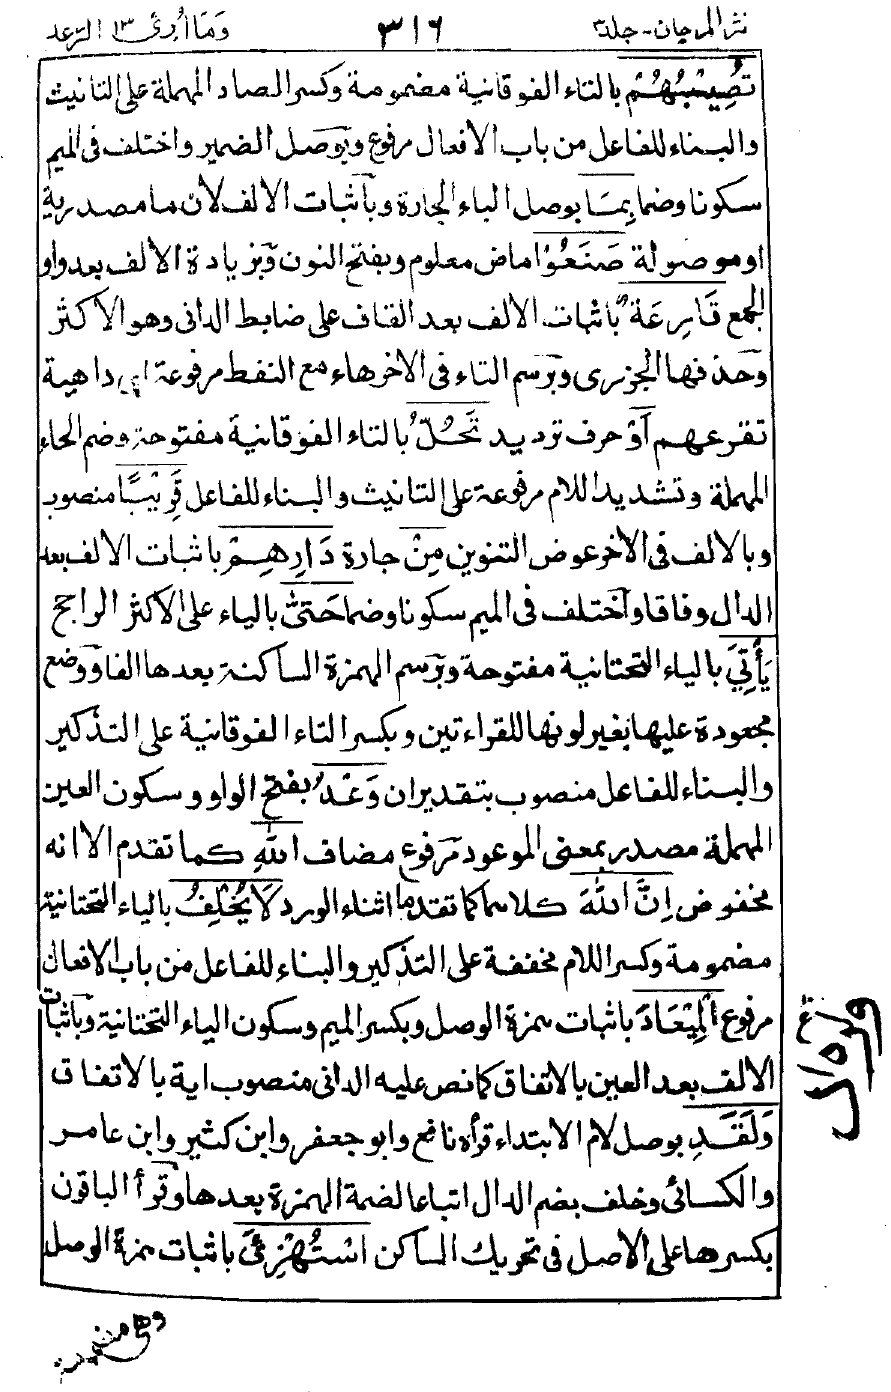 نثر المرجان - جلد٣
٣١٦
وَمَا أُبَرِّئُ ١٣ الرعد
تُصِيْبُهُمْ بالتاء الفوقانية مضمومة وكسر الصاد المهملة على التانيث
والبناء للفاعل من باب الافعال مرفوع وبوصل الضمير واختلف فى الميم
سكونا وضما بِمَا بوصل الباء الجارة وباثبات الالف لان ما مصدرية
او موصولة صَنَعُوْا ماض معلوم وبفتح النون وبزيادة الالف بعد واو
الجمع قَارِعَةٌ باثبات الالف بعد القاف على ضابط الدانى وهو الاكثر
وحذفها الجزرى وبرسم التاء فى الاخر هاء مع النقط مرفوعة اى داهية
تقرعهم أَوْ حرف ترديد تَحُلُّ بالتاء الفوقانية مفتوحة وضم الحاء
المهملة وتشديد اللام مرفوعة على التانيث والبناء للفاعل قَرِيْبًا منصوب
وبالالف فى الاخر عوض التنوين مِنْ جارة دَارِهِمْ باثبات الالف بعد
الدال وفاقا واختلف فى الميم سكونا وضما حَتّٰى بالياء على الاكثر الراجح
يَأْتِيَ بالياء التحتانية مفتوحة وبرسم الهمزة الساكنة بعدها الفا ووضع
مجعودة عليها بغير لونها للقراءتين وبكسر التاء الفوقانية على التذكير
والبناء للفاعل منصوب بتقدير ان وَعْدُ بفتح الواو وسكون العين
المهملة مصدر بمعنى الموعود مرفوع مضاف اللّٰهِ كما تقدم الا انه
مخفوض اِنَّ اللّٰهَ كلاهما كما تقدما اثناء الورد لَا يُخْلِفُ بالياء التحتانية
مضمومة وكسر اللام مخففة على التذكير والبناء للفاعل من باب الافعال
مرفوع الْمِيْعَادَ باثبات همزة الوصل وبكسر الميم وسكون الياء التحتانية وباثبات
الالف بعد العين بالاتفاق كما نص عليه الدانى منصوب اية بالاتفاق
وَلَقَدِ بوصل لام الابتداء قرأه نافع وابو جعفر وابن كثير وابن عامر
والكسائى وخلف بضم الدال اتباعا لضمة الهمزة بعدها وقرأ الباقون
بكسرها على الاصل فى تحريك الساكن اسْتُهْزِئَ باثبات همزة الوصل